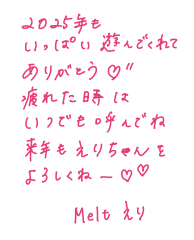 2025年も
いっぱい遊んでくれて
ありがとう♡"
疲れた時は
いつでも呼んでね
来年もえりちゃんを
よろしくねー♡♡
Melt えり